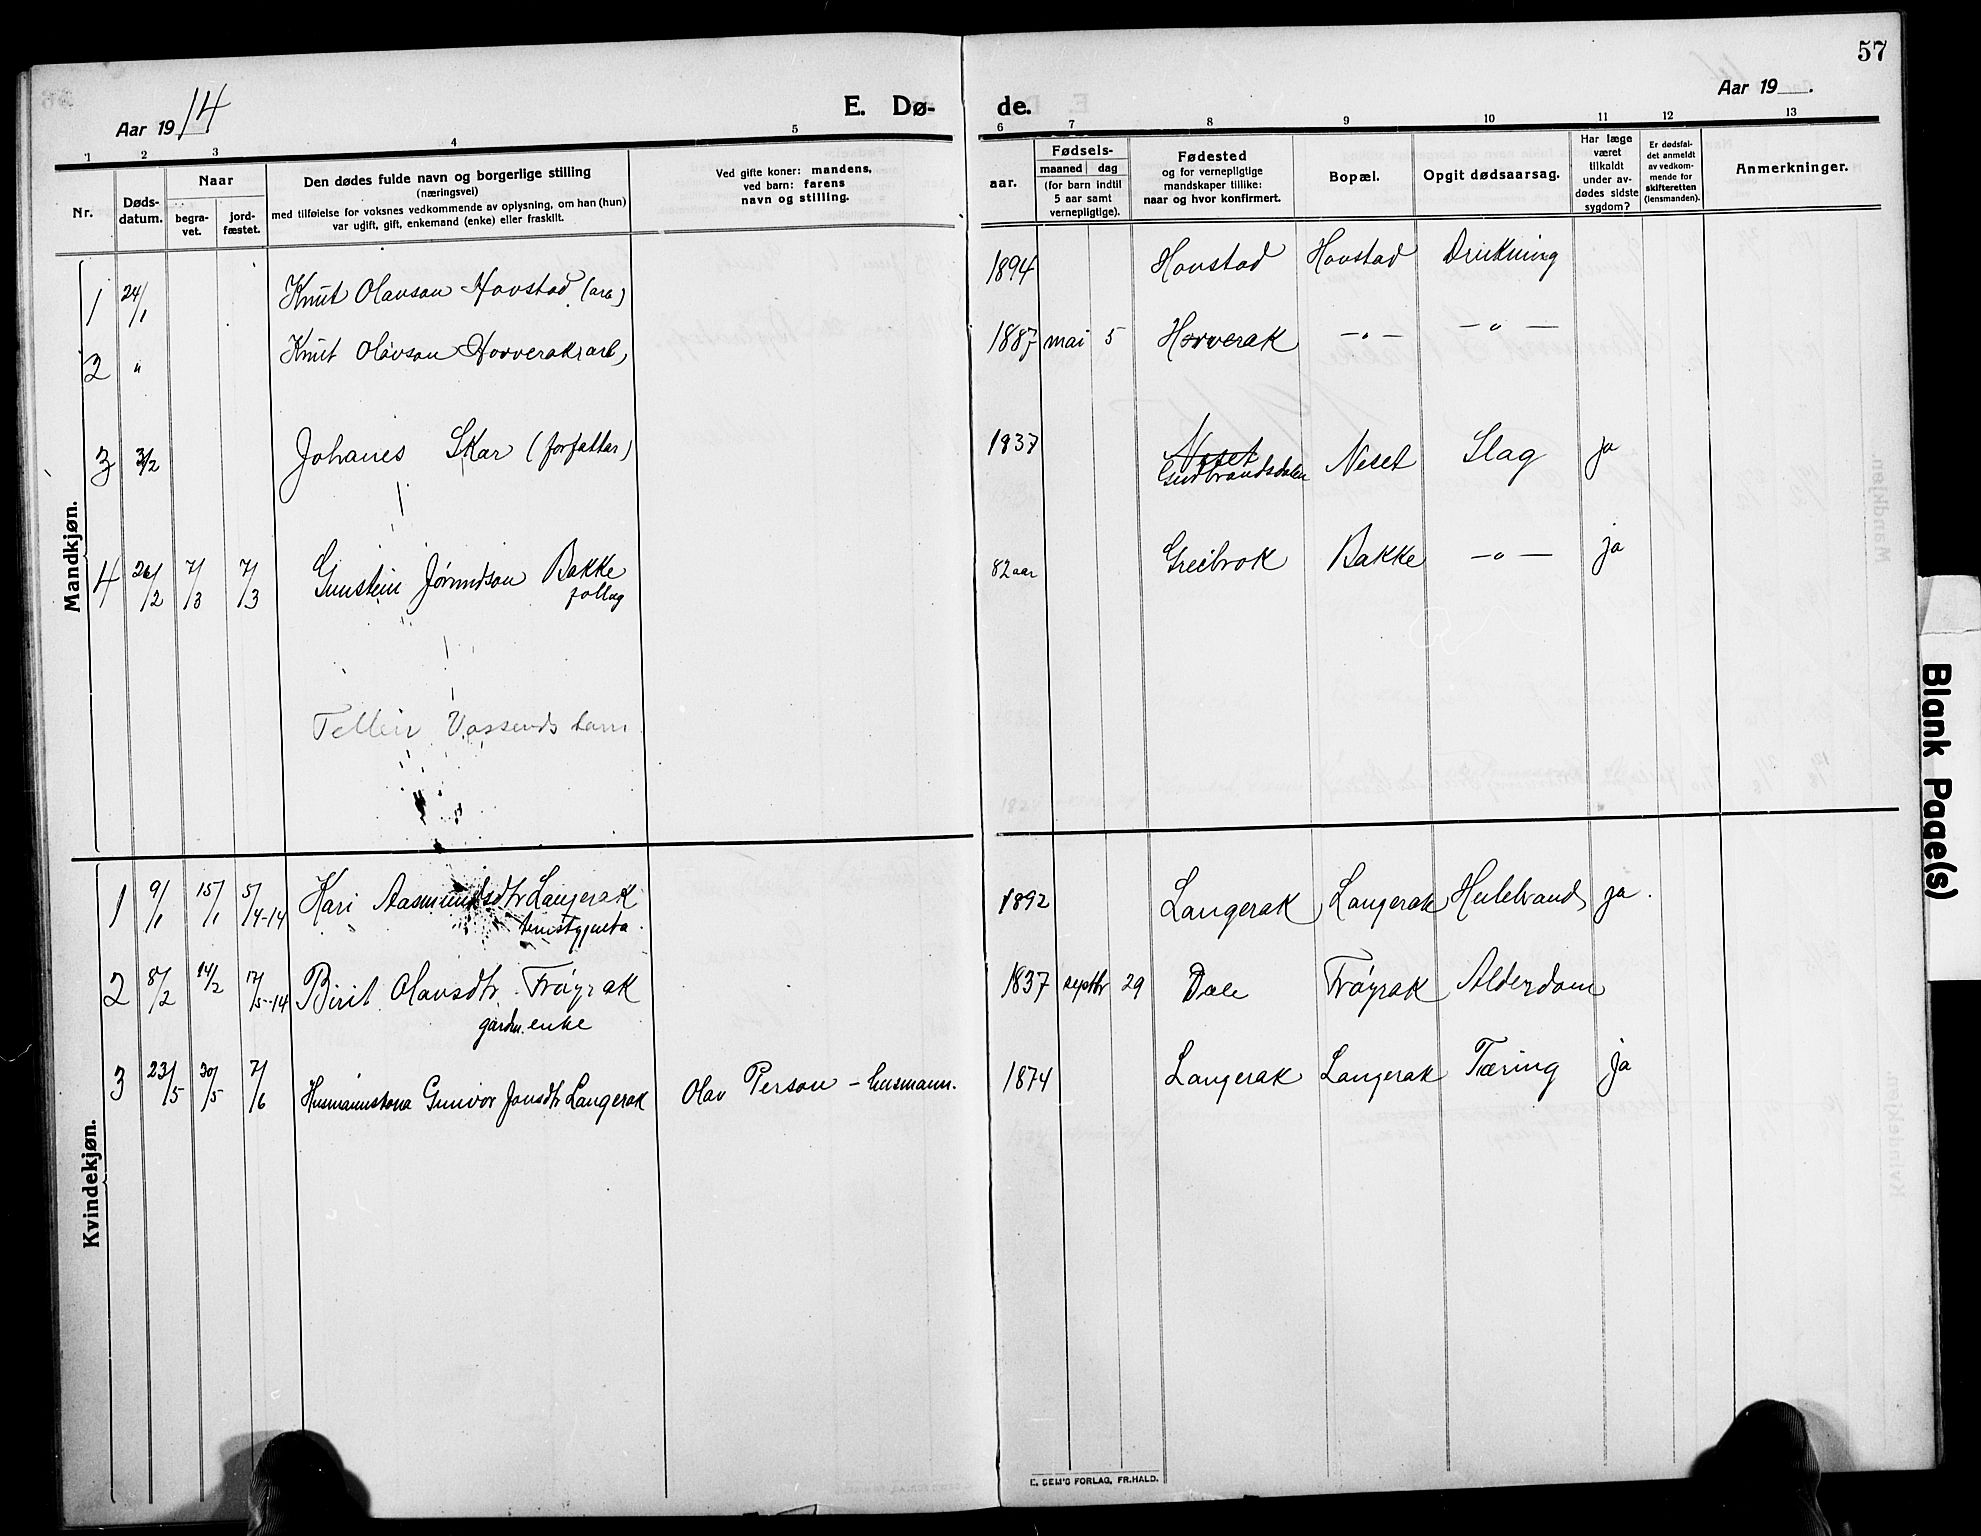 57
Aar 1914
E. Dø-
de.
Aar 19 .
1 2 3 4 5 6 7 8 9 10 11 12 13
Nr.
Døds-
datum.
Naar
begra-
vet.
jord-
fæstet.
Den dødes fulde navn og borgerlige stilling
(næringsvei)
med tilføielse for voksnes vedkommende av oplysning, om han (hun)
var ugift, gift, enkemand (enke) eller fraskilt.
Ved gifte koner: mandens,
ved barn: farens
navn og stilling.
aar.
Fødsels-
maaned dag
(for barn indtil
5 aar samt
vernepligtige).
Fødested
og for vernepligtige
mandskaper tillike:
naar og hvor konfirmert.
Bopæl.
Opgit dødsaarsag.
Har læge
været
tilkaldt
under av-
dødes sidste
sygdom?
Er dødsfal-
det anmeldt
av vedkom-
mende for
skifteretten
(lensmanden).
Anmerkninger.
Mandkjøn.
1 24/1 Knut Olavson Hovstad (arb) 1894 Hovstad Hovstad Drukning
2 " Knut Olavson Horverak (arb) 1887 mai 5 Horverak —„— —„—
3 3/2 Johanes Skar (forfattar) 1837 Neset Gudbrandsdalen Neset Slag ja
4 26/2 7/3 7/3 Gunstein Jørundson Bakke 82 aar Greibrok Bakke —„— ja
Vossends barn
Kvindekjøn.
1 9/1 15/1 5/4-14 Kari Aasmundsdtr Langerak 1892 Langerak Langerak ja.
tenistgjenta.
2 8/2 14/2 17/5-14 Birit Olavsdtr. Frøyrak 1837 septbr 29 Dale Frøyrak Alderdom
gardm. enke
3 23/5 30/5 7/6 Husmannskona Gunvor Jonsdtr Langerak Olav Person – husmann. 1874 Langerak Langerak Tæring ja
E. SEM'S FORLAG, FR.HALD.
Blank Page(s)